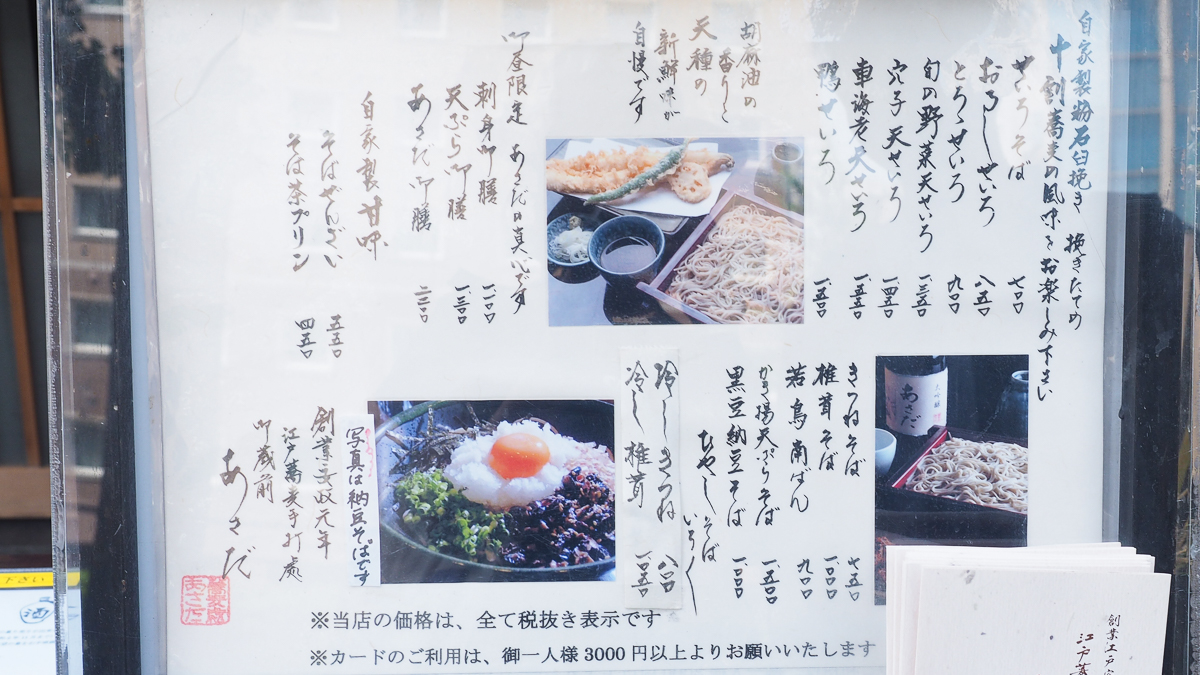 自家製粉石臼挽き 挽きたての
十割蕎麦の風味をお楽しみ下さい
せいろそば 七〇〇
おろしせいろ 八五〇
とろろせいろ 九〇〇
旬の野菜天せいろ 一三五〇
穴子天せいろ 一四五〇
車海老天せいろ 一五五〇
鴨せいろ 一五〇〇
胡麻油の
香りと
天種の
新鮮味が
自慢です
御昼限定 あさだの真心です
刺身御膳
天ぷら御膳 一三〇〇
あさだ御膳
自家製甘味
そばぜんざい 五五〇
そば茶プリン 四五〇
きつねそば 七五〇
椎茸そば 一〇〇〇
若鳥南ばん 九〇〇
かき揚天ぷらそば 一一五〇
黒豆納豆そば 一一〇〇
ひやしそば
いろいろ
冷しきつね 八〇〇
冷し椎茸 一〇五〇
写真は納豆そばです
創業安政元年
江戸蕎麦手打處
御蔵前
あさだ
※当店の価格は、全て税抜き表示です
※カードのご利用は、御一人様3000円以上よりお願いいたします
あさだ
創業江戸
江戸蕎
下さい